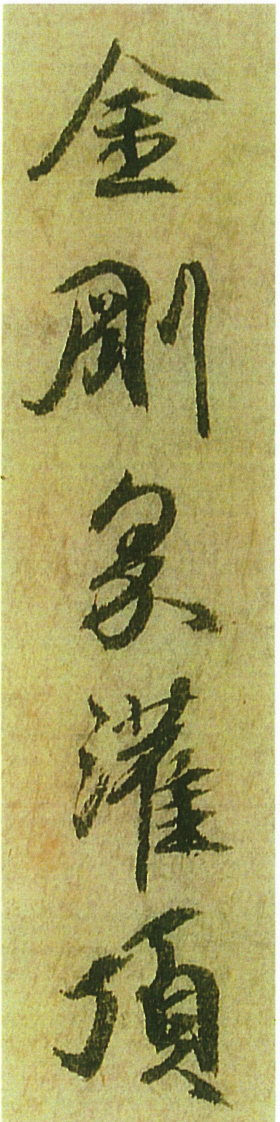 金剛界灌頂